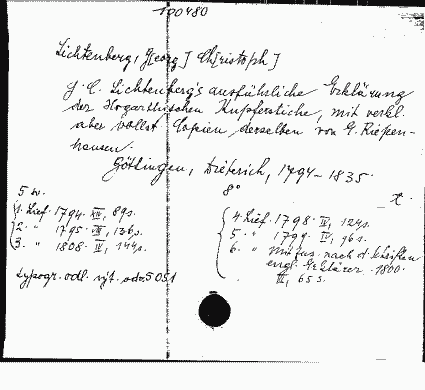 100480
Lichtenberg, G[eorg] Ch[ristoph]
G. C. Lichtenberg's ausführliche Erklärung
der Hogarthischen Kupferstiche, mit verkl.
aber vollst. Copien derselben von E. Riepen-
hausen.
Göttingen, Dieterich, 1794-1835.
8°
5 w.
1. Lief. 1794. XII, 89 s.
2. " 1795. VIII, 136 s.
3. " 1808. IV, 144 s.
4. Lief. 1798. IV, 124 s.
5. " 1799. IV, 96 s.
6. " Mit Zus. nach d. Schriften
engl. Erklärer. 1800.
III, 65 s.